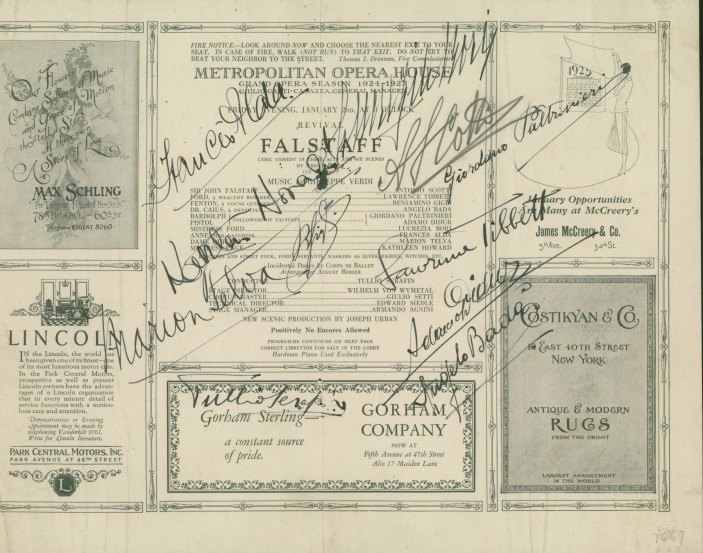 Our Flowers
Combine
and
they tell
A Story of Love
MAX SCHLING
785 FIFTH AVE. at 60TH ST.
Telephone REGENT 8060
LINCOLN
IN the Lincoln, the world has
been given one of its finest—one
of its most luxurious motor cars.
In the Park Central Motors,
prospective as well as present
Lincoln owners have the advan-
tages of a Lincoln organization
that in every minute detail of
service functions with a meticu-
lous care and attention.
Demonstrations or Evening
appointment may be made by
telephoning Vanderbilt 9761.
Write for Lincoln literature.
PARK CENTRAL MOTORS, INC.
PARK AVENUE AT 46TH STREET
L
FIRE NOTICE.—LOOK AROUND NOW AND CHOOSE THE NEAREST EXIT TO YOUR
SEAT. IN CASE OF FIRE, WALK (NOT RUN) TO THAT EXIT. DO NOT TRY TO
BEAT YOUR NEIGHBOR TO THE STREET. Thomas J. Drennan, Fire Commissioner
METROPOLITAN OPERA HOUSE
GRAND OPERA SEASON 1924-1925
GIULIO GATTI-CASAZZA, GENERAL MANAGER
FRIDAY EVENING, JANUARY 2nd, AT 8 O'CLOCK
REVIVAL
FALSTAFF
LYRIC COMEDY IN THREE ACTS AND SIX SCENES
MUSIC GIUSEPPE VERDI
SIR JOHN FALSTAFF ANTONIO SCOTTI
FORD, A WEALTHY LAWRENCE TIBBETT
FENTON, A YOUNG BENIAMINO GIGLI
DR. CAIUS, ANGELO BADA
BARDOLPH GIORDANO PALTRINIERI
FOLLOWERS OF FALSTAFF
PISTOL ADAMO DIDUR
MISTRESS FORD LUCREZIA BORI
ANNE FRANCES ALDA
DAME MARION TELVA
KATHLEEN HOWARD
AND STREET FOLK, FORD'S SERVANTS, MASKERS AS ELVES, FAIRIES, WITCHES, ETC.
Incidental Dance by CORPS DE BALLET
Arranged by AUGUST BERGER
CONDUCTOR TULLIO SERAFIN
STAGE DIRECTOR WILHELM VON WYMETAL
CHORUS MASTER GIULIO SETTI
TECHNICAL DIRECTOR EDWARD SIEDLE
STAGE MANAGER ARMANDO AGNINI
NEW SCENIC PRODUCTION BY JOSEPH URBAN
Positively No Encores Allowed
PROGRAMME CONTINUED ON NEXT PAGE
CORRECT LIBRETTOS FOR SALE IN THE LOBBY
Hardman Piano Used Exclusively
Frances Alda
A Scotti
Giordano Paltrinieri
Marion Telva
Lawrence Tibbett
Adamo Didur
Angelo Bada
Tullio Serafin
Gorham Sterling
a constant source
of pride.
GORHAM
COMPANY
NOW AT
Fifth Avenue at 47th Street
Also 17 Maiden Lane
1925
January Opportunities
Are Many at McCreery's
James McCreery & Co.
5th Ave. 34th St.
COSTIKYAN & CO.
12 EAST 40TH STREET
NEW YORK
ANTIQUE & MODERN
RUGS
FROM THE ORIENT
LARGEST ASSORTMENT
IN THE WORLD